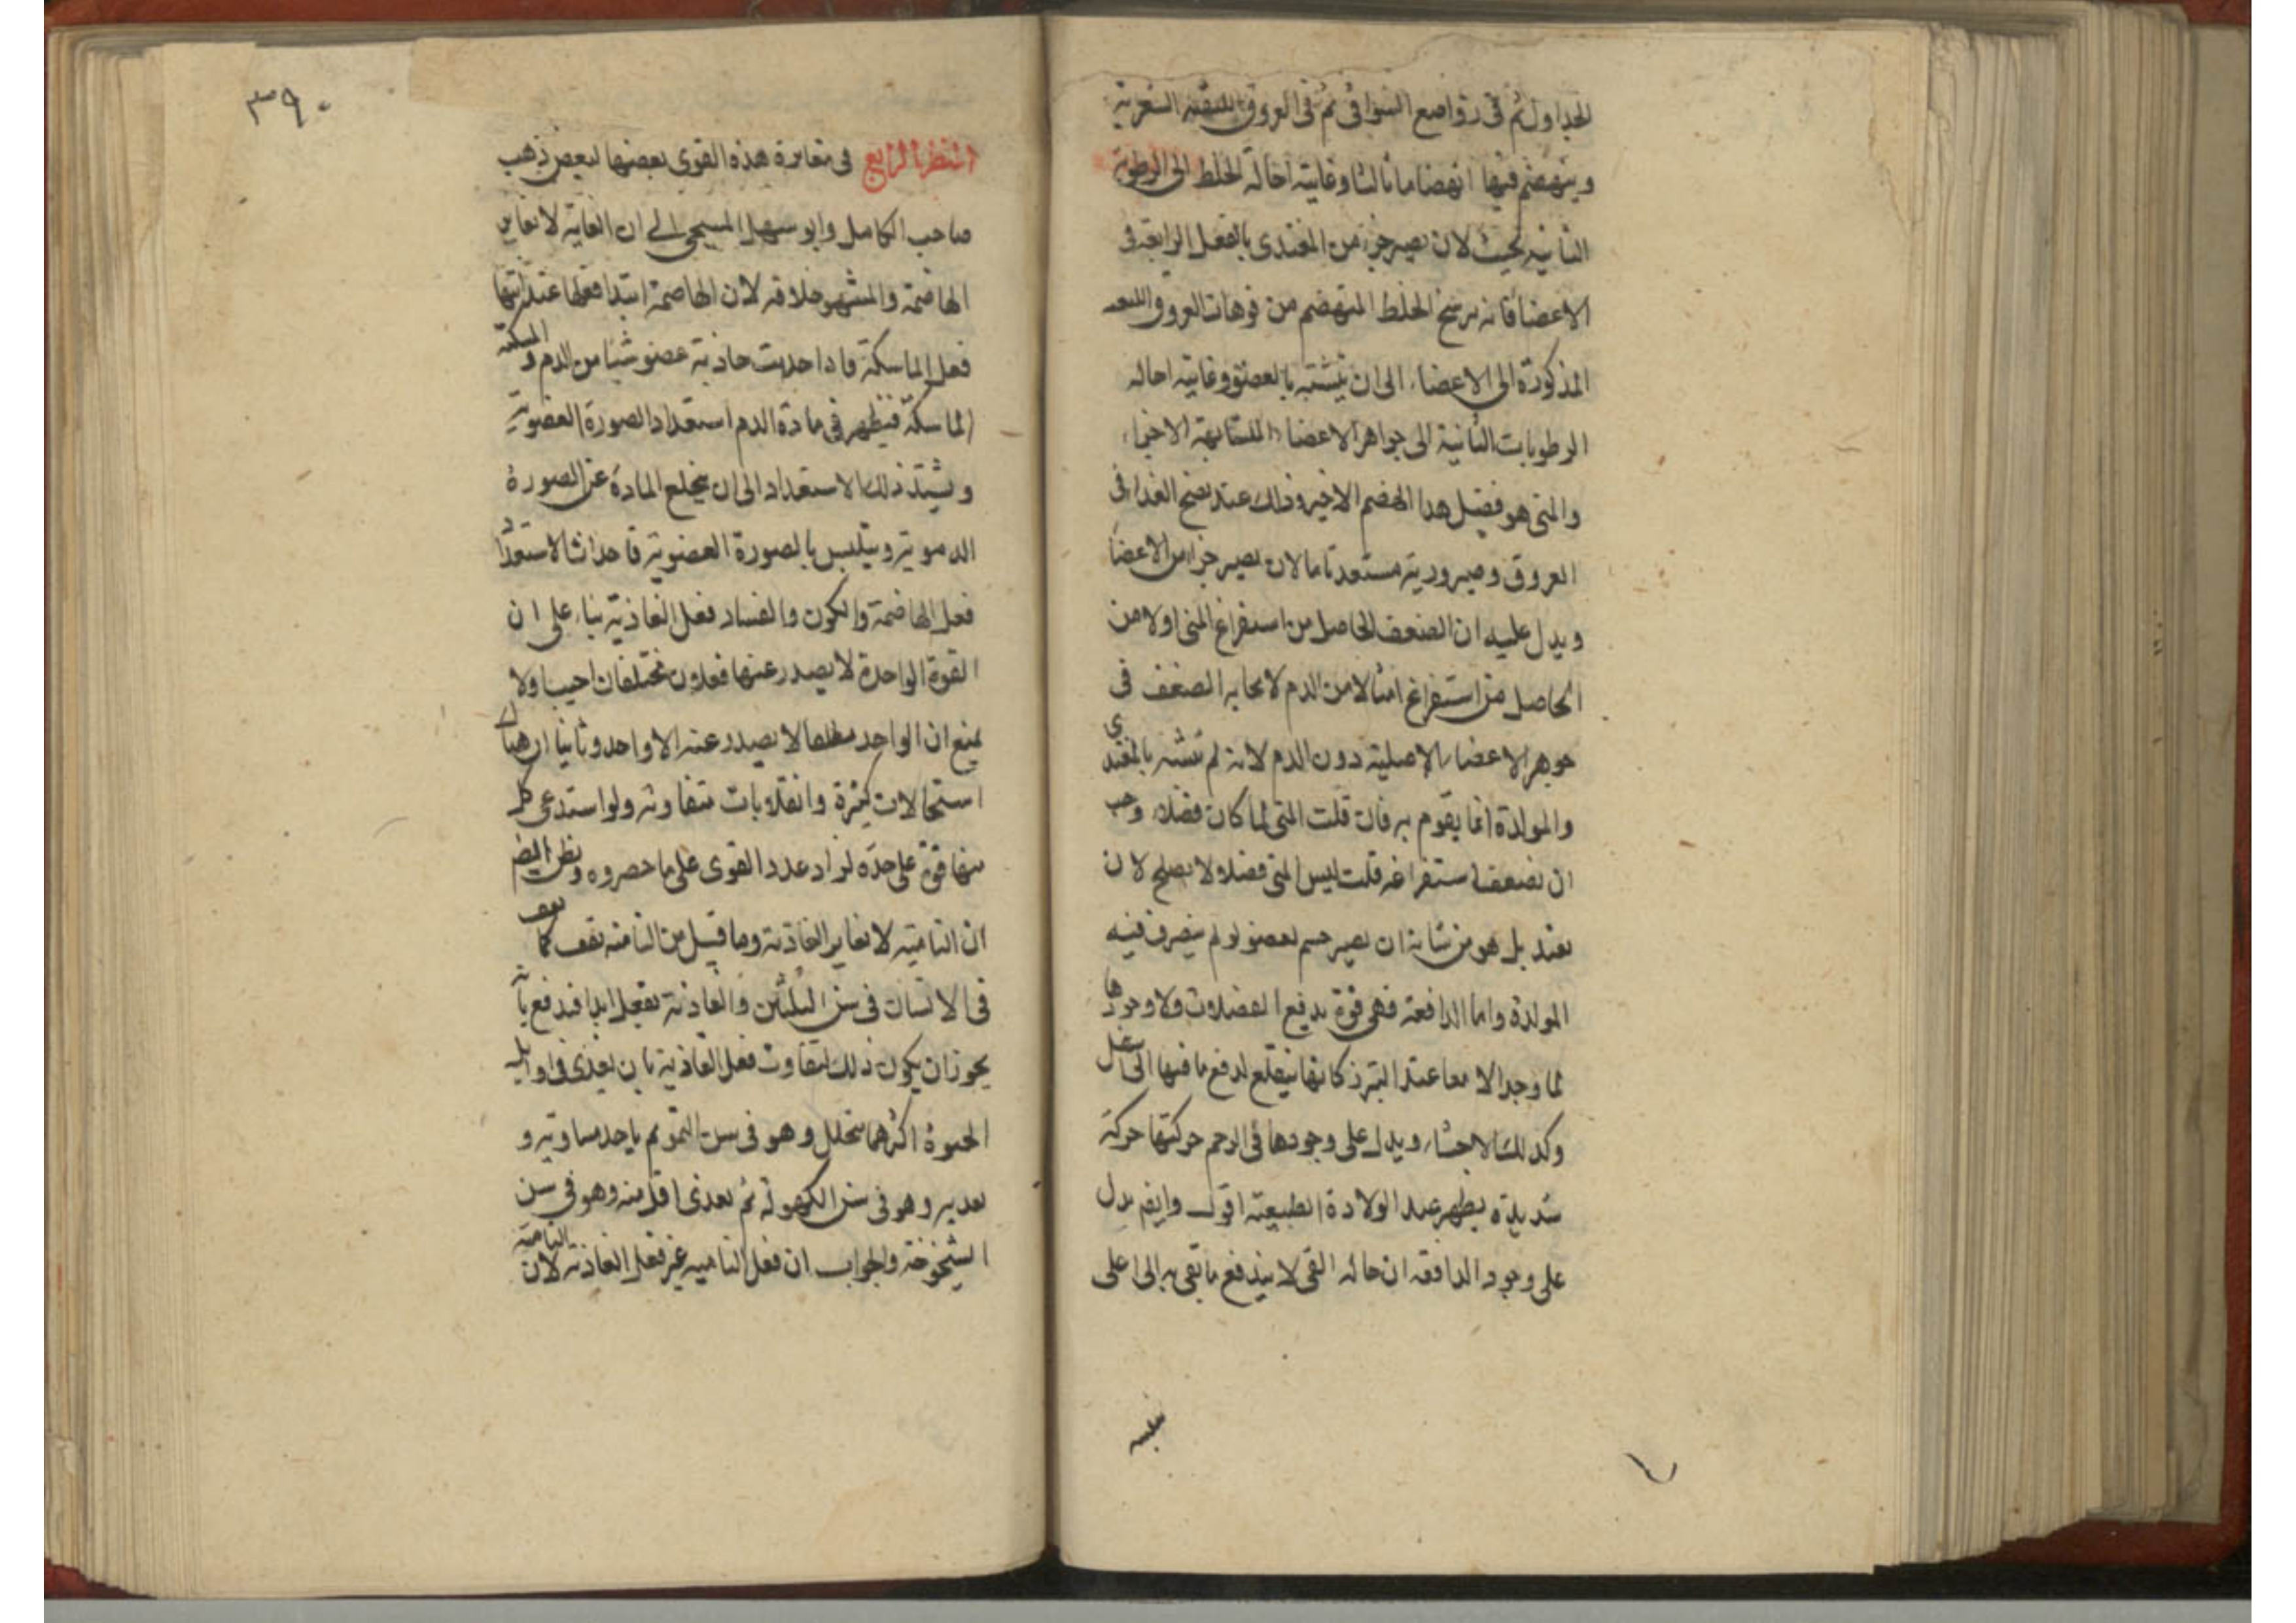 الجداول ثم في رواضع السواقي ثم في العروق الليفية الشعرية
وينهضم فيها انهضاما ثالثا وغايته احالة الخلط الى الرطوبة
الثانية بحيث لان يصير جزء من المغتدى بالفعل الرابعة في
الاعضا فانه يرسخ الخلط المنهضم من فوهات العروق
المذكورة الى الاعضاء الى ان يتشبه بالعضو وغايته احاله
الرطوبات الثانية الى جواهر الاعضا المتشابهة الاجزاء
والمنى هو فضل هدا الهضم الاخير وذلك عند نضج الغدا فى
العروق وصيرورته مستعد تاما لان يصير جزا من الاعضا
ويدل عليه ان الضعف الحاصل من استفراغ المنى اولا من
الحاصل من استفراغ امثالا من الدم لايجابه الضعف فى
جوهر الاعضاء الاصلية دون الدم لانه لم تشبه بالمغتدي
والمولدة انما يقوم به فان قلت المنى لما كان فضلا وجب
ان نضعف استفراغه قلت ليس المنى فضلا ولا يصلح لان
يغتد بل هو من شانه ان يصير جسم لعضو لو لم يتصرف فيه
المولدة واما الدافعة فهى قوة يدفع الفضلات ولا وجودها
لما وجد الامعا عند التبرز كانها ينقلع لدفع ما فيها الى
وكدلك الاحشاء ويدل على وجودها فى الرحم حركتها حركة
شديدة يظهر عند الولادة الطبيعة اقول وايضم يدل
على وجود الدافعة ان حاله القى لا يندفع ما تقى به الى اعلى
٣٩٠
النظر الرابع في مغايرة هذه القوى بعضها لبعض ذهب
صاحب الكامل وابو سهل المسيحى الى ان الغاية لا تغاير
الهاضمة والمشهور خلافه لان الهاضمة ابتدا فعلها عند انتها
فعل الماسكة فاذا جذبت جاذبة عضو شيا من الدم و امسكته
الماسكة فيظهر في مادة الدم استعداد الصورة العضوية
ويشتد ذلك الاستعداد الى ان يخلع المادة عن الصورة
الدموية ويتلبس بالصورة العضوية فاحداث الاستعداد
فعل الهاضمة والكون والفساد فعل الغاذية بناء على ان
القوة الواحدة لا يصدر عنها فعلان مختلفان اجيب اولا
بمنع ان الواحد مطلقا لا يصدر عنه الا واحد وثانيا ان هنا
استحالات كثيرة وانقلابات متفاوته ولو استدعى كل
منها قوة على حده لزاد عدد القوى على ما حصروه و
ان النامية لا تغاير الغاذية وما قيل من النامية تقف
فى الانسان فى سن الثلثين والغاذية تفعل ابدا فيدفع بانه
يجوز ان يكون ذلك لتفاوت فعل الغاذية بان يغذى فى اوايل
الحيوة اكثر مما يتحلل وهو فى سن النمو ثم ياخد مساويه و
يغديه وهو فى سن الكهولة ثم يغدى اقل منه وهو فى سن
الشيخوخة والجواب ان فعل النامية غير فعل الغاذية لان النامية